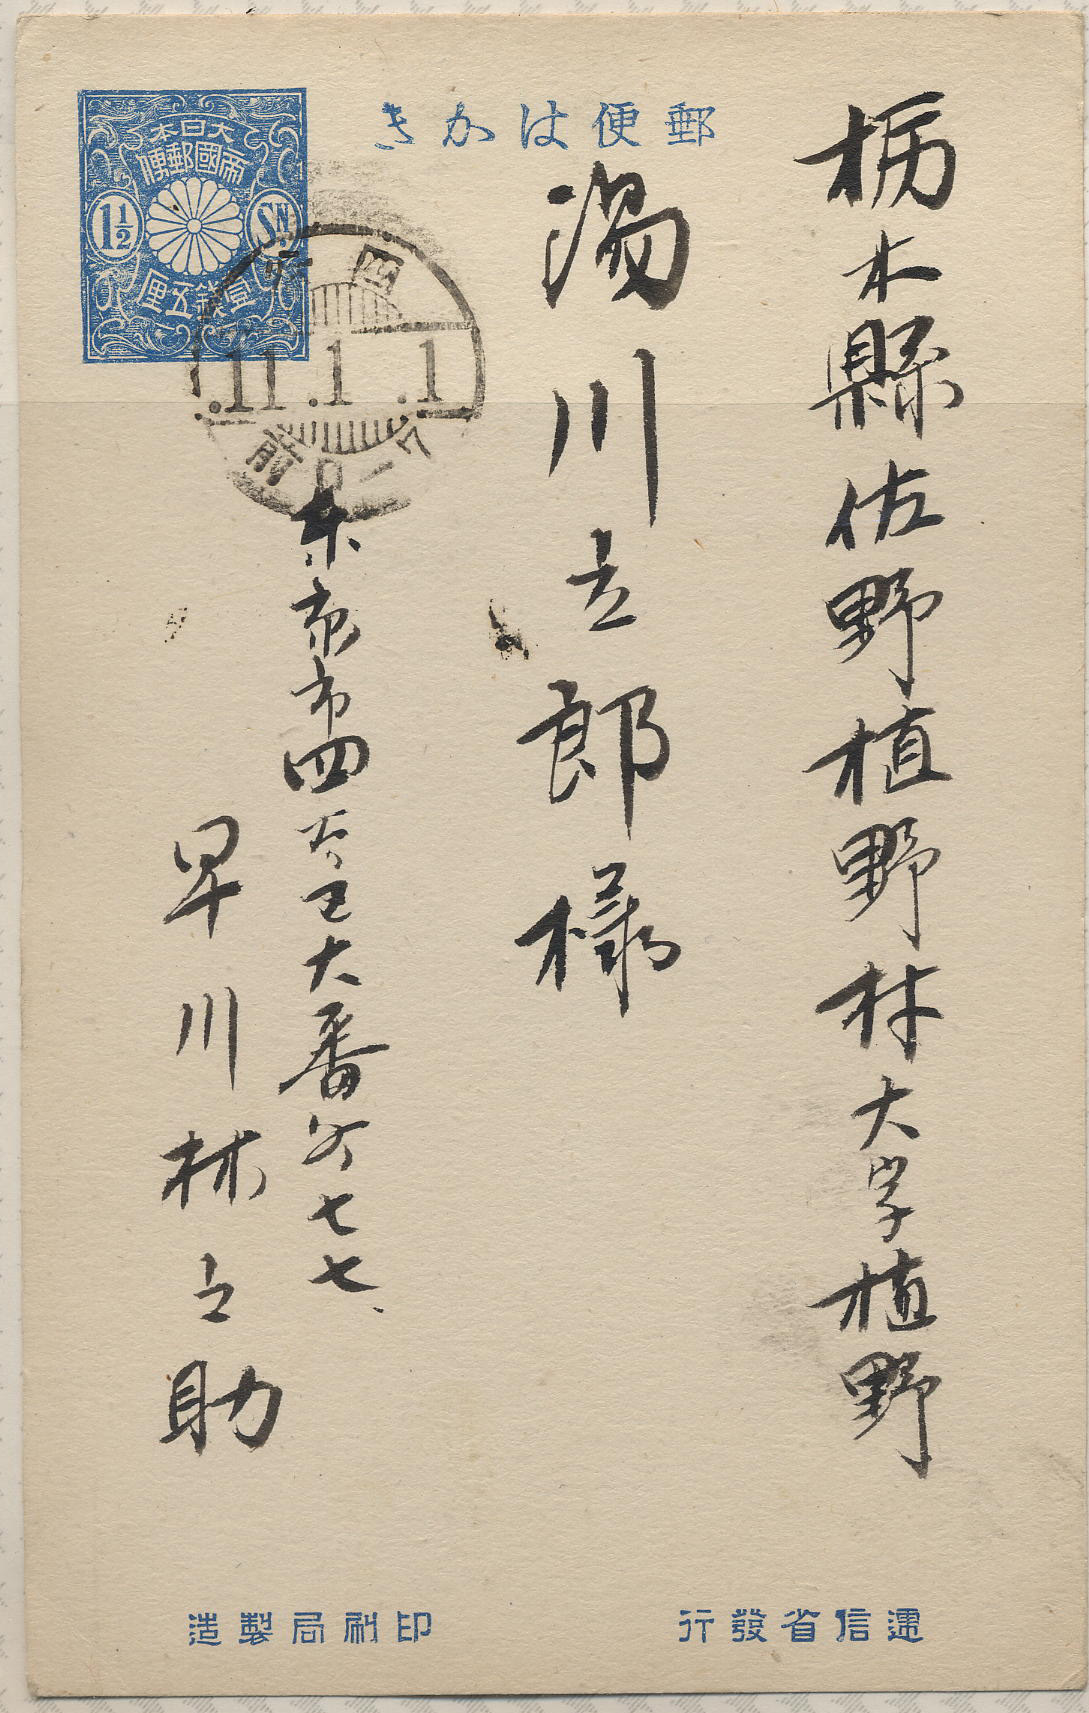 郵便はかき
大日本
帝國郵便
1½
SN
壹錢五厘
四谷
11.1.1
前
栃木縣佐野植野村大字植野
湯川立郎様
東京市四谷区大番町七七、
早川林之助
逓信省發行
印刷局製造